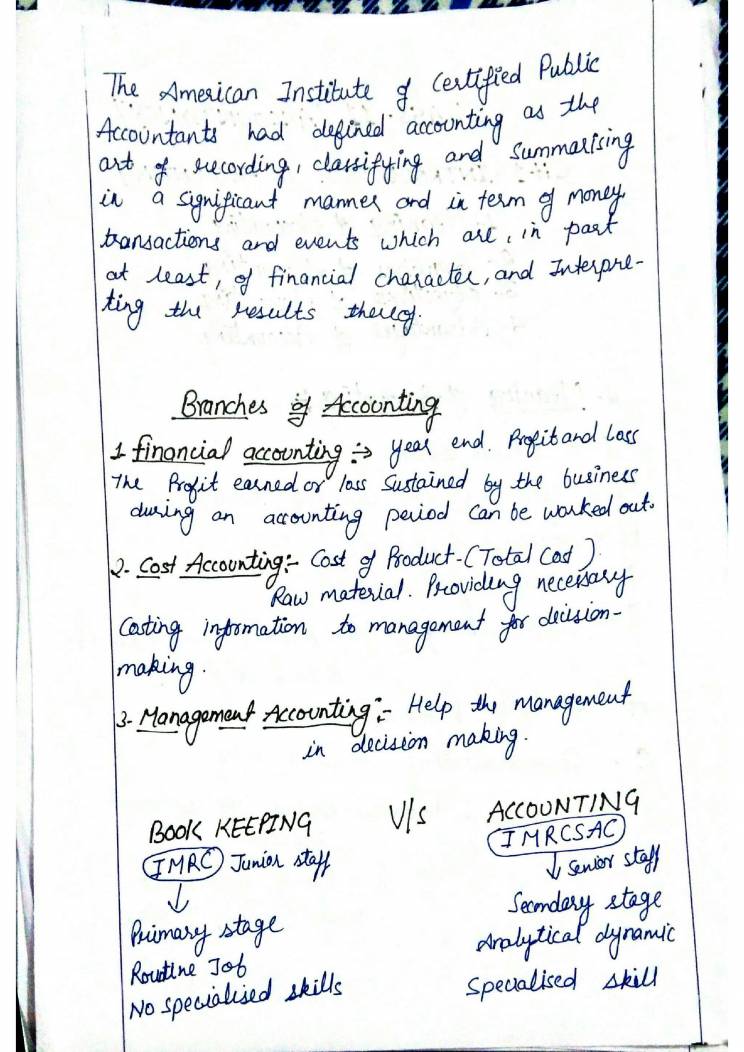 The American Institute of Certified Public
Accountants had defined accounting as the
art of recording, classifying and Summarising
in a significant manner and in term of money
transactions and events which are, in part
at least, of financial character, and Interpre-
ting the results thereof.
Branches of Accounting
1 financial accounting :→ year end. Profit and Loss
The Profit earned or loss Sustained by the business
during an accounting period can be worked out.
2- Cost Accounting:- Cost of Product-(Total Cost)
Raw material. Providing necessary
Costing information to management for decision-
making.
3- Management Accounting:- Help the management
in decision making.
BOOK KEEPING V/s ACCOUNTING
IMRC Junior staff IMRCSAC
↓ ↓ Senior staff
Primary stage Secondary stage
Routine Job Analytical dynamic
No specialised skills Specialised skill